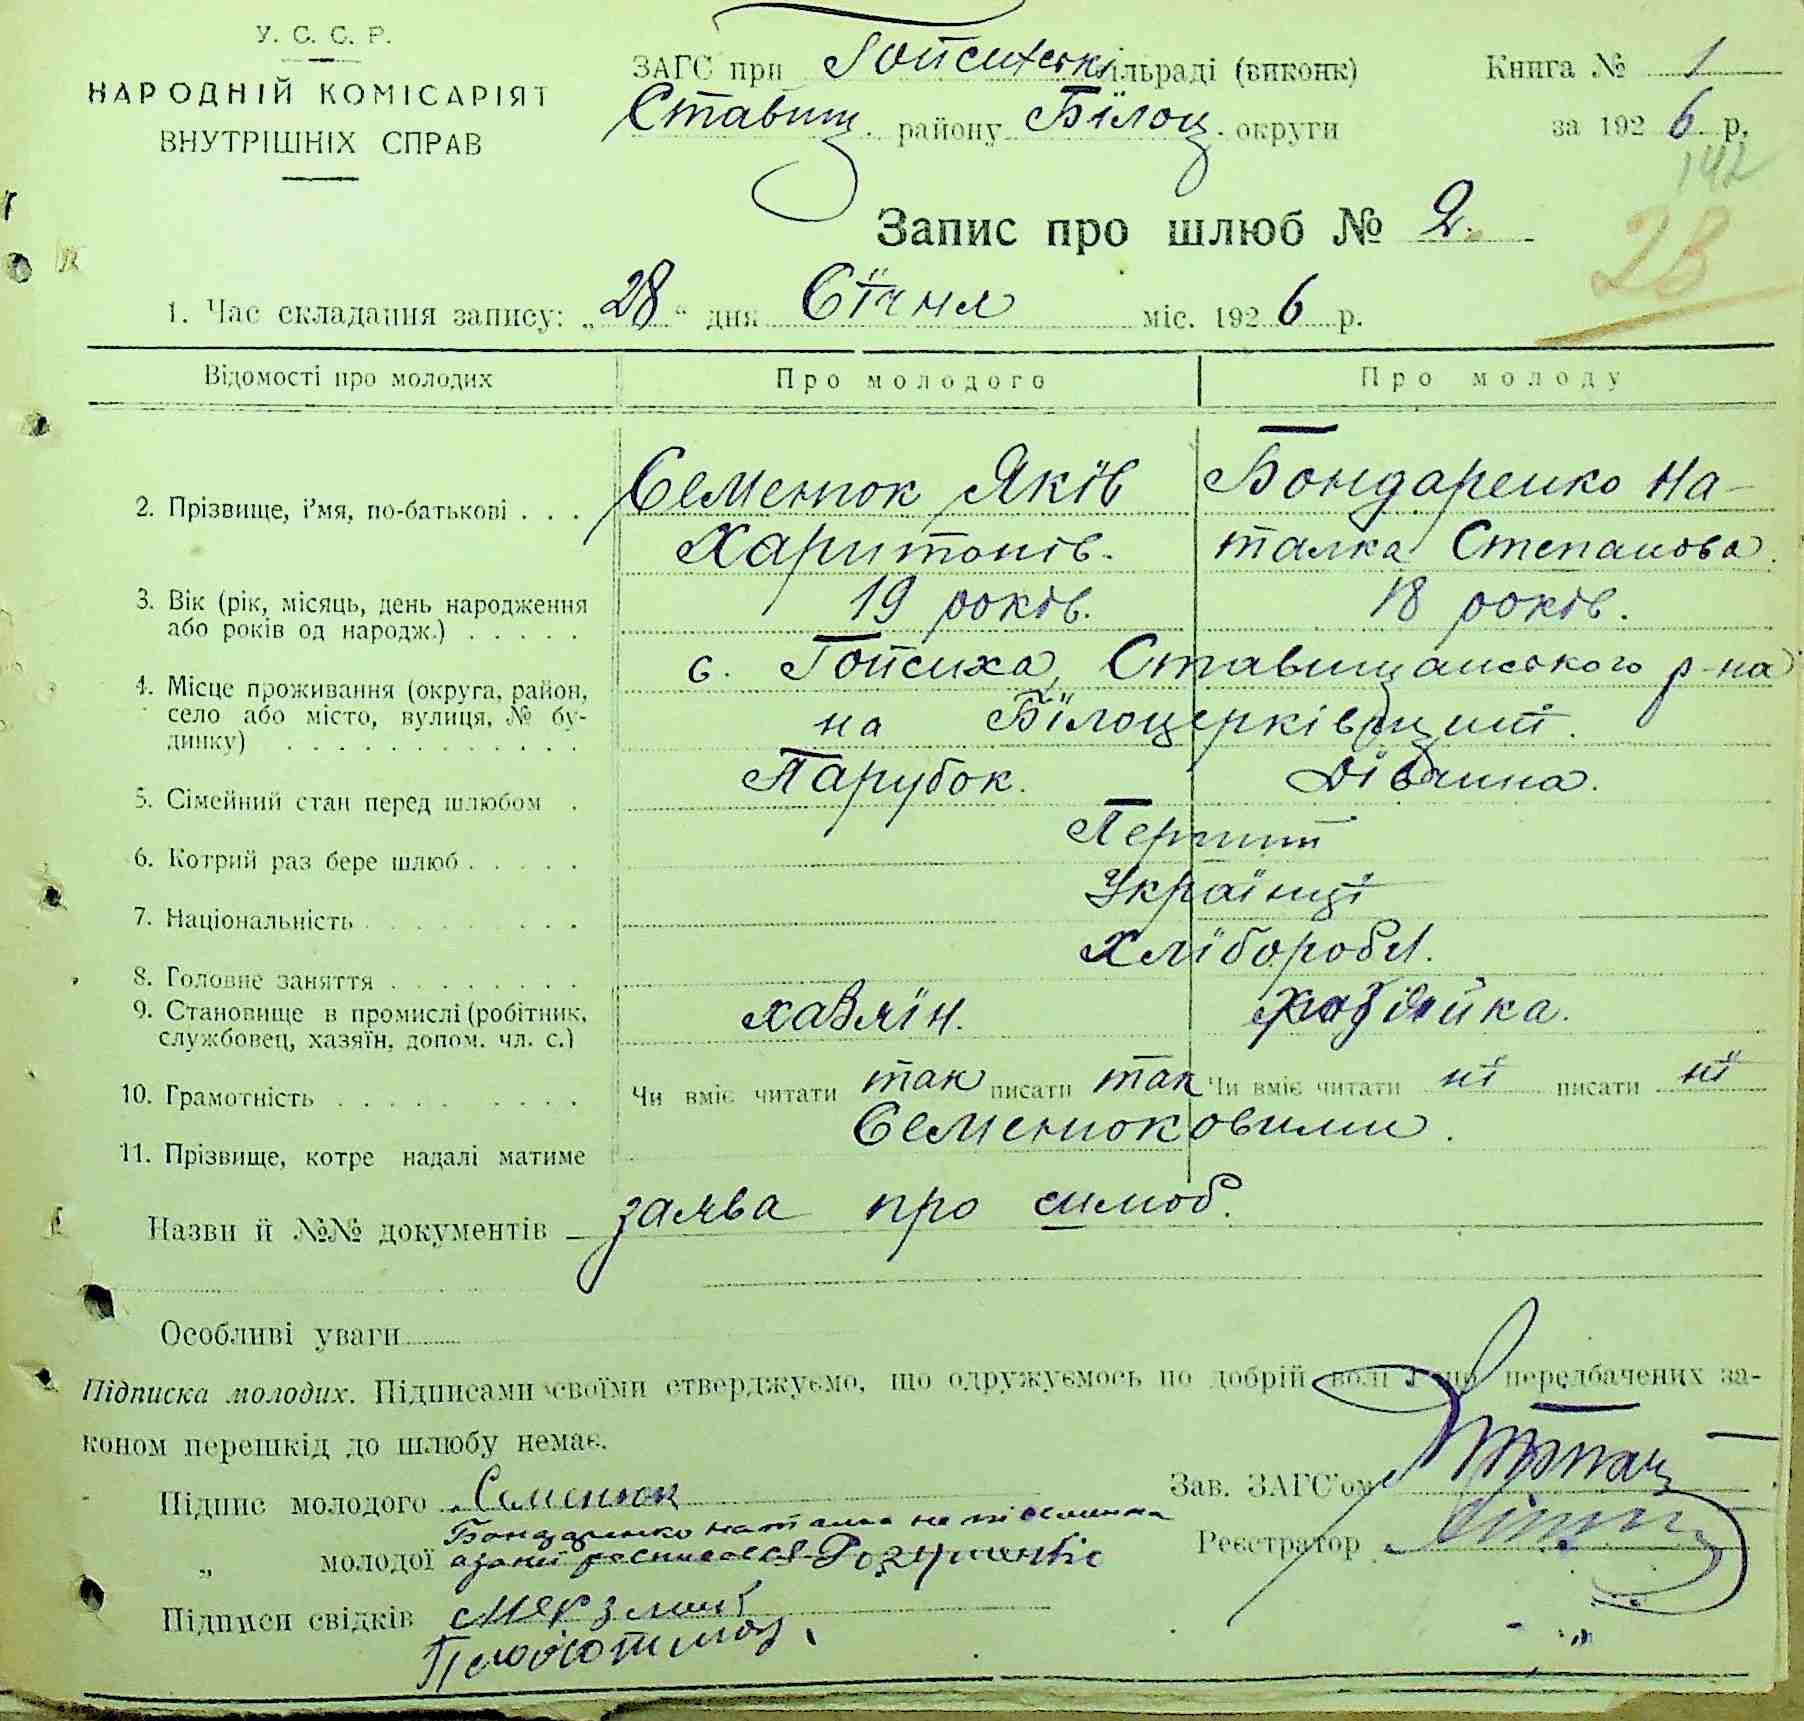 У. С. С. Р.
НАРОДНІЙ КОМІСАРІЯТ
ВНУТРІШНІХ СПРАВ
ЗАГС при Гопсиськ сільраді (виконк)
Ставищ. району Білоц. округи
Книга № 1
за 1926 р.
142
28
Запис про шлюб № 2.
1. Час складання запису: „28“ дня Січня міс. 1926 р.
Відомості про молодих Про молодого Про молоду
2. Прізвище, і'мя, по-батькові . . . Семенюк Яків Бондаренко На-
Харитонів. талка Степанова.
3. Вік (рік, місяць, день народження
або років од народж.) . . . . . 19 років. 18 років.
4. Місце проживання (округа, район,
село або місто, вулиця, № бу-
динку) . . . . . . . . . . . .
с. Гопсиха, Ставищанського р-на
на Білоцерківщині.
5. Сімейний стан перед шлюбом . Парубок. Дівчина.
6. Котрий раз бере шлюб . . . . . Перший
7. Національність . . . . . . . . . Українці
8. Головне заняття . . . . . . . . Хлібороби.
9. Становище в промислі (робітник,
службовец, хазяїн, допом. чл. с.) хазяїн. хазяйка.
10. Грамотність . . . . . . . . . Чи вміє читати так писати так Чи вміє читати ні писати ні
11. Прізвище, котре надалі матиме Семенюковими.
Назви й №№ документів заява про шлюб.
Особливі уваги
Підписка молодих. Підписами своїми стверджуємо, що одружуємось по добрій волі і що передбачених за-
коном перешкід до шлюбу немає.
Підпис молодого Семенюк
Зав. ЗАГС'ом
Бондаренко Наталка неписьменна
„ молодої
Реєстратор
Підписи свідків